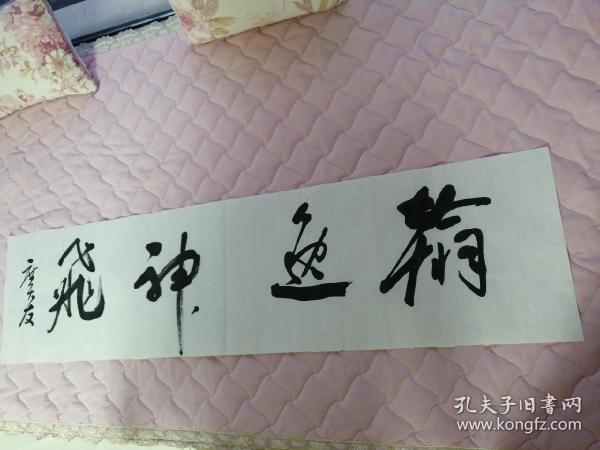 翰逸神飛
孔夫子旧書网
www.kongfz.com